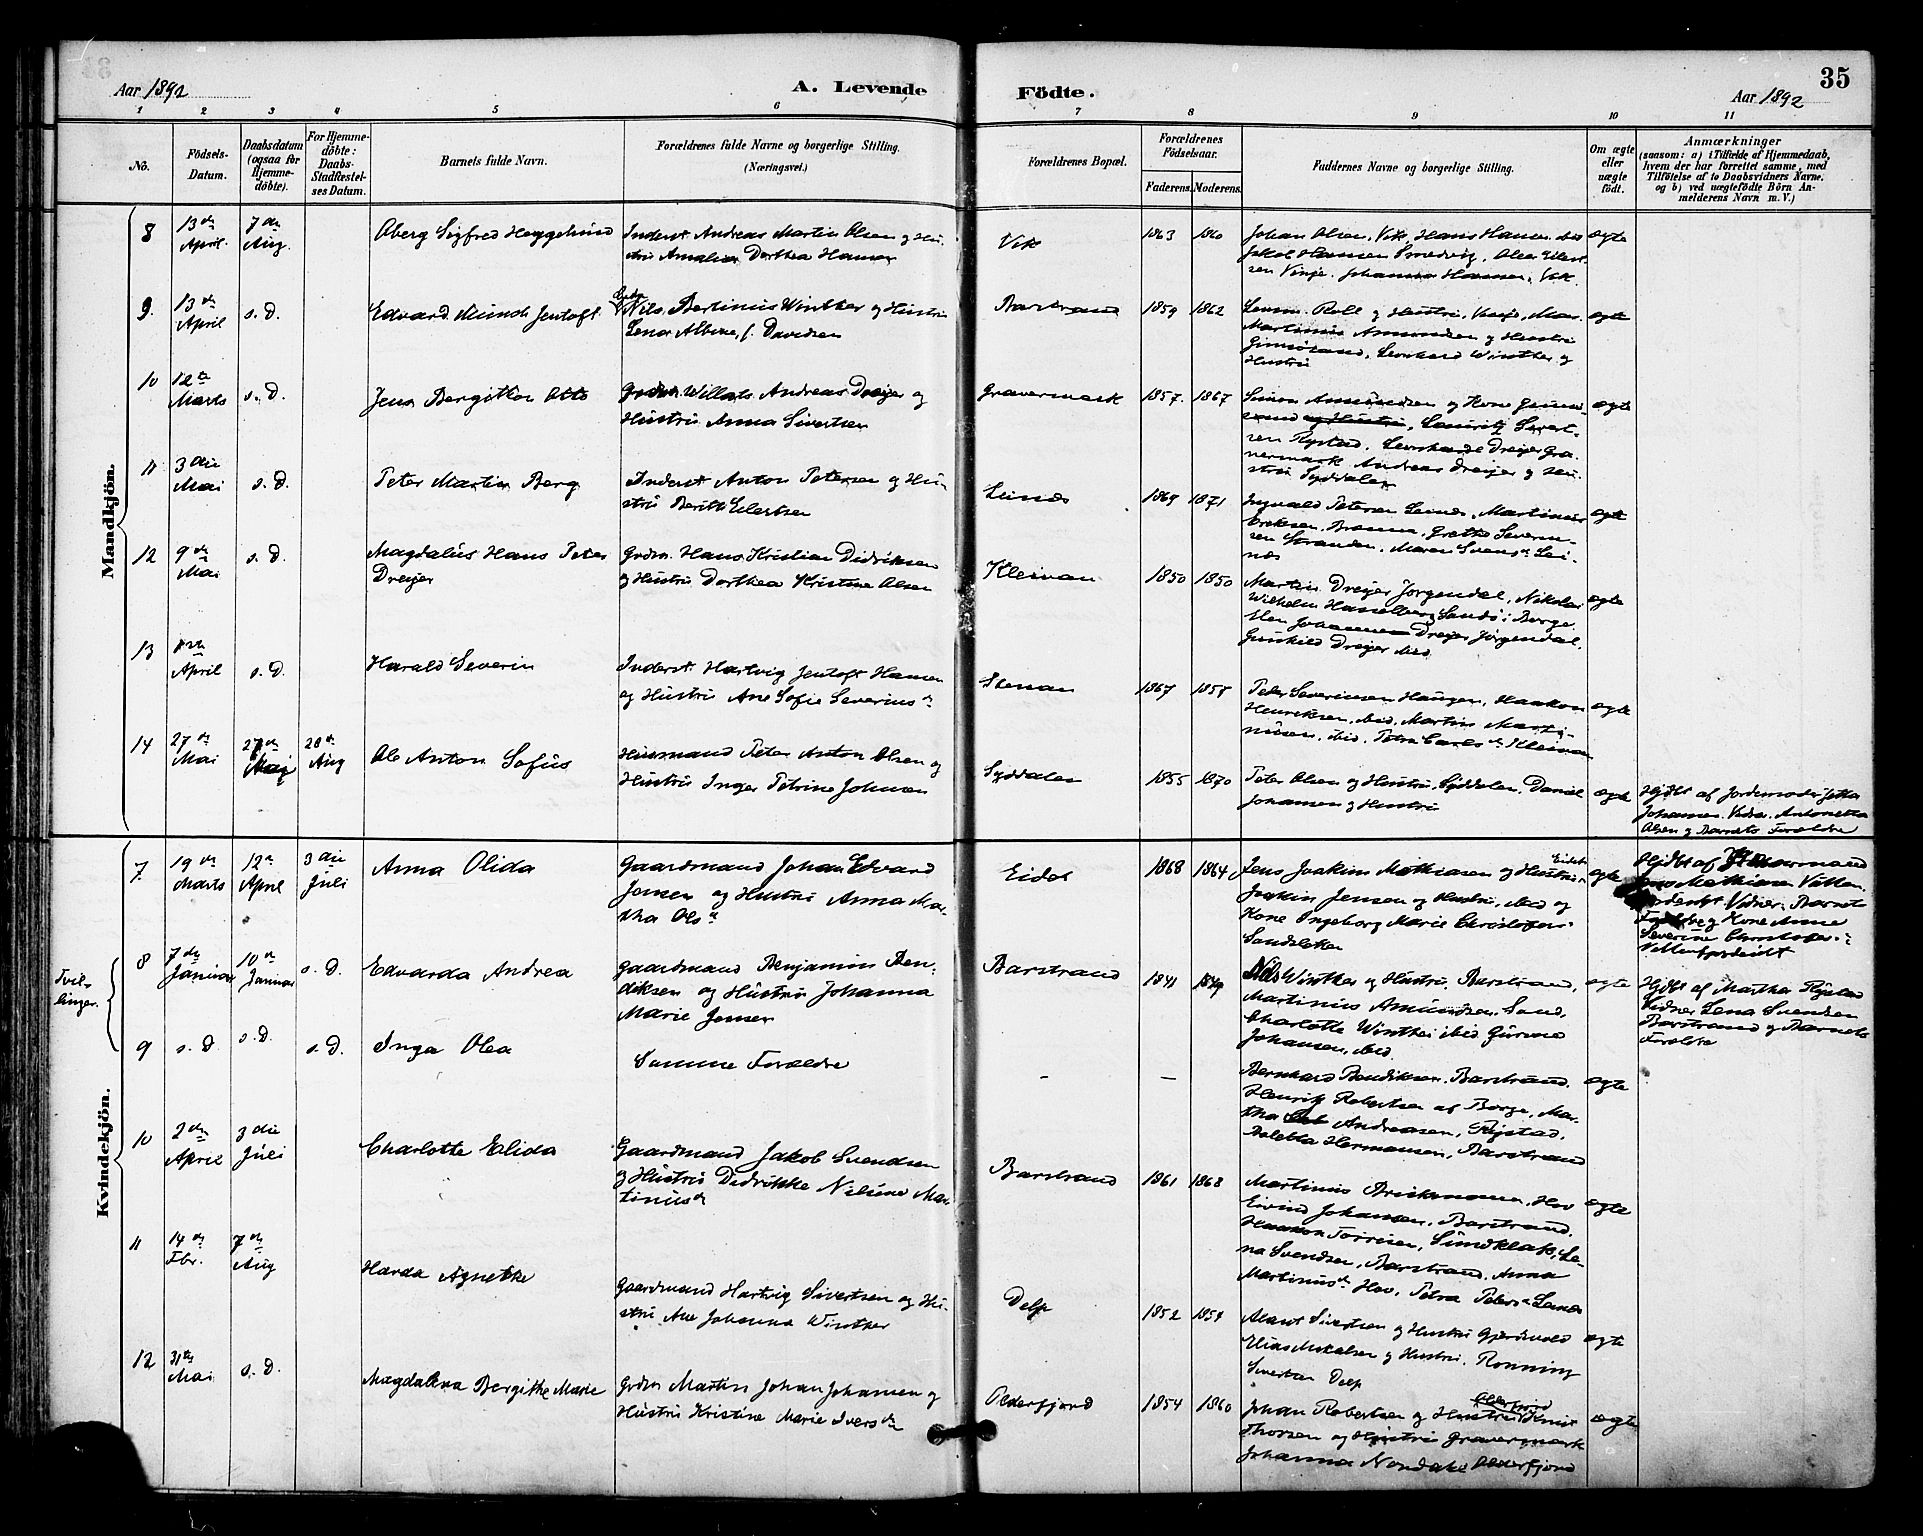 Aar 1892
A. Levende
Födte.
35
Aar 1892
1 2 3 4 5 6 7 8 9 10 11
No.
Födsels-
Datum.
Daabsdatum
(ogsaa for
Hjemme-
döbte).
For Hjemme-
döbte:
Daabs-
Stadfæstel-
ses Datum.
Barnets fulde Navn.
Forældrenes fulde Navne og borgerlige Stilling.
(Næringsvei.)
Forældrenes Bopæl.
Forældrenes
Födselsaar.
Faderens. Moderens.
Faddernes Navne og borgerlig Stilling.
Om ægte
eller
uægte
født.
Anmærkninger
(saasom: a) i Tilfælde af Hjemmedaab,
hvem der har forrettet samme, med
Tilföielse af to Daabsvidners Navne,
og b) ved uægtefödte Börn An-
melderens Navn m. V.)
Mandkjön.
8
13de
April.
7de
Aug.
Aberg Sigfred Heggelund
Inderst Andreas Martin Olsen og Hu-
stru Amalia Dorthea Hansen
Vik
1863 1860
Johan Olsen, Vik, Hans Hansen ibid
Jakob Hansen Smedvig, Olea Eilert-
sen Vinje, Johanna Hansen, Vik.
ægte
9.
13de
April
s. D.
Edvard Munch Jentoft
Nils Bertinius Winther og Hustru
Lena Albine, f. Davidsen
Barstrand
1859 1862
Roll og Hustru,
Martinius Amundsen og Hustru
Gimsösand, Leonhard Winther og
Hustru
ægte
10
12te
Marts
s. D.
Jens Bergiton Otto
Grdm. Willats Andreas Dreyer og
Hustru Anna Sivertsen
Gravermark
1857. 1867
Simon Amundsen og Kone
og Hustru, Lauritz Sivert-
sen Rystad, Leonharde Dreyer Gra-
vermark Andreas Dreyer og Hu-
stru Syddalen
ægte
11
3die
Mai
s. D.
Peter Martin Berg
Inderst Anton Petersen og Hu-
stru Berit Eilertsen
Leinæs
1869 1871
Ingvald Petersen Leinæs, Martinus
Eriksen, Brenna, Grethe Severin-
sen Stranden, Maren Svensd. Lei-
næs
ægte
12
9de
Mai
s. D.
Magdalus Hans Peter
Dreyer
Grdm. Hans Kristian Didriksen
og Hustru Dorthea Kristine Olsen
Kleivan
1850 1850
Martin Dreyer Jørgendal, Nikolai
Wilhelm Hasselberg Sandö i Borge
Johannes Dreyer Jørgendal,
Gunhild Dreyer ibid
ægte
13
April
s. D.
Harald Severin
Inderst Hartvig Jentoft Hansen
og Hustru Ane Sofie Severinsd.
Stenan
1867 1858
Peter Severinsen Haugen, Haakon
Henriksen, ibid, Martin Marti-
nusen, ibid, Petra Carlsd. Kleivan
ægte
14
27de
Mai
27de
Mai
28de
Aug
Ole Anton Sofus
Husmand Peter Anton Olsen og
Hustru Inger Petrine Johnsen
Syddalen
1855 1870
Peter Olsen og Hustru, Syddalen, Daniel
Johansen og Hustru
ægte
Hjdbt af Jordemoder Jetta
Johansen. Vidner. Antonetta
Olsen og Barnets Forældre
Kvindekjön.
7.
19de
Marts
12te
April
3die
Juli
Anna Olida
Gaardmand Johan Edvard
Jensen og Hustru Anna Mar-
tha Olsd.
Eidet
1868 1864
Jens Joakim Mathiasen og Hustru Eidet
Joakim Jensen og Hustru, ibid og
Kone Ingeborg Marie Christofers.
Sandsletten
ægte
Hjdbt af
Mathiasen Vatten-
fjordeidet Vidner: Barnets
Forældre og Kone Anne
Severine Christofers.:
Vattenfjordeidet
Tvil-
linger.
8
7de
Januar
10de
Januar
s. D.
Edvarda Andrea
Gaardmand Benjamin Ben-
diksen og Hustru Johanna
Marie Jensen
Barstrand
1841 1849
Nils Winther og Hustru, Barstrand,
Martinius Amundsen, Sand,
Charlotte Winther ibid
Johansen, ibid
ægte
Hjdbt af Martha Rystad
Vidner Lena Svendsen
Barstrand og Barnets
Forældre
9
s. D.
s. D.
s. D.
Inga Olea
Samme Forældre
– –
Bernhard Bendiksen, Barstrand,
Henrik Robertsen af Borge, Mar-
tha Andreasen, Rystad,
Boletta Hermansen, Barstrand
ægte
10
2den
April
3die
Juli
Charlotte Elida
Gaardmand Jakob Svendsen
og Hustru Didrikke Nilsine Mar-
tinusd.
Barstrand
1861 1868
Martinus Brinkmann, Hov
Eivind Johansen, Barstrand,
Haakon Torrisen, Sundklakk, Le-
na Svendsen, Barstrand, Anna
Martinusd. Hov, Petra Petersd. Leinæs
ægte
11
14de
Fbr.
7de
Aug
Harda Agnethe
Gaardmand Hartvig Sivertsen og Hu-
stru Ane Johanna Winther
Delp
1852 1854
Sivertsen og Hustru
Elias Mikalsen og Hustru, Rönning
Sivertsen Delp
ægte
12
31te
Mai
s. D.
Magdalena Bergithe Marie
Grdm Martin Johan Johansen og
Hustru Kristine Marie Iversd.
Olderfjord
1854 1860
Johan Robertsen og Hustru Olderfjord Knut
Thorsen og Hustru Gravermark
Johanna Nordahl Olderfjord
ægte